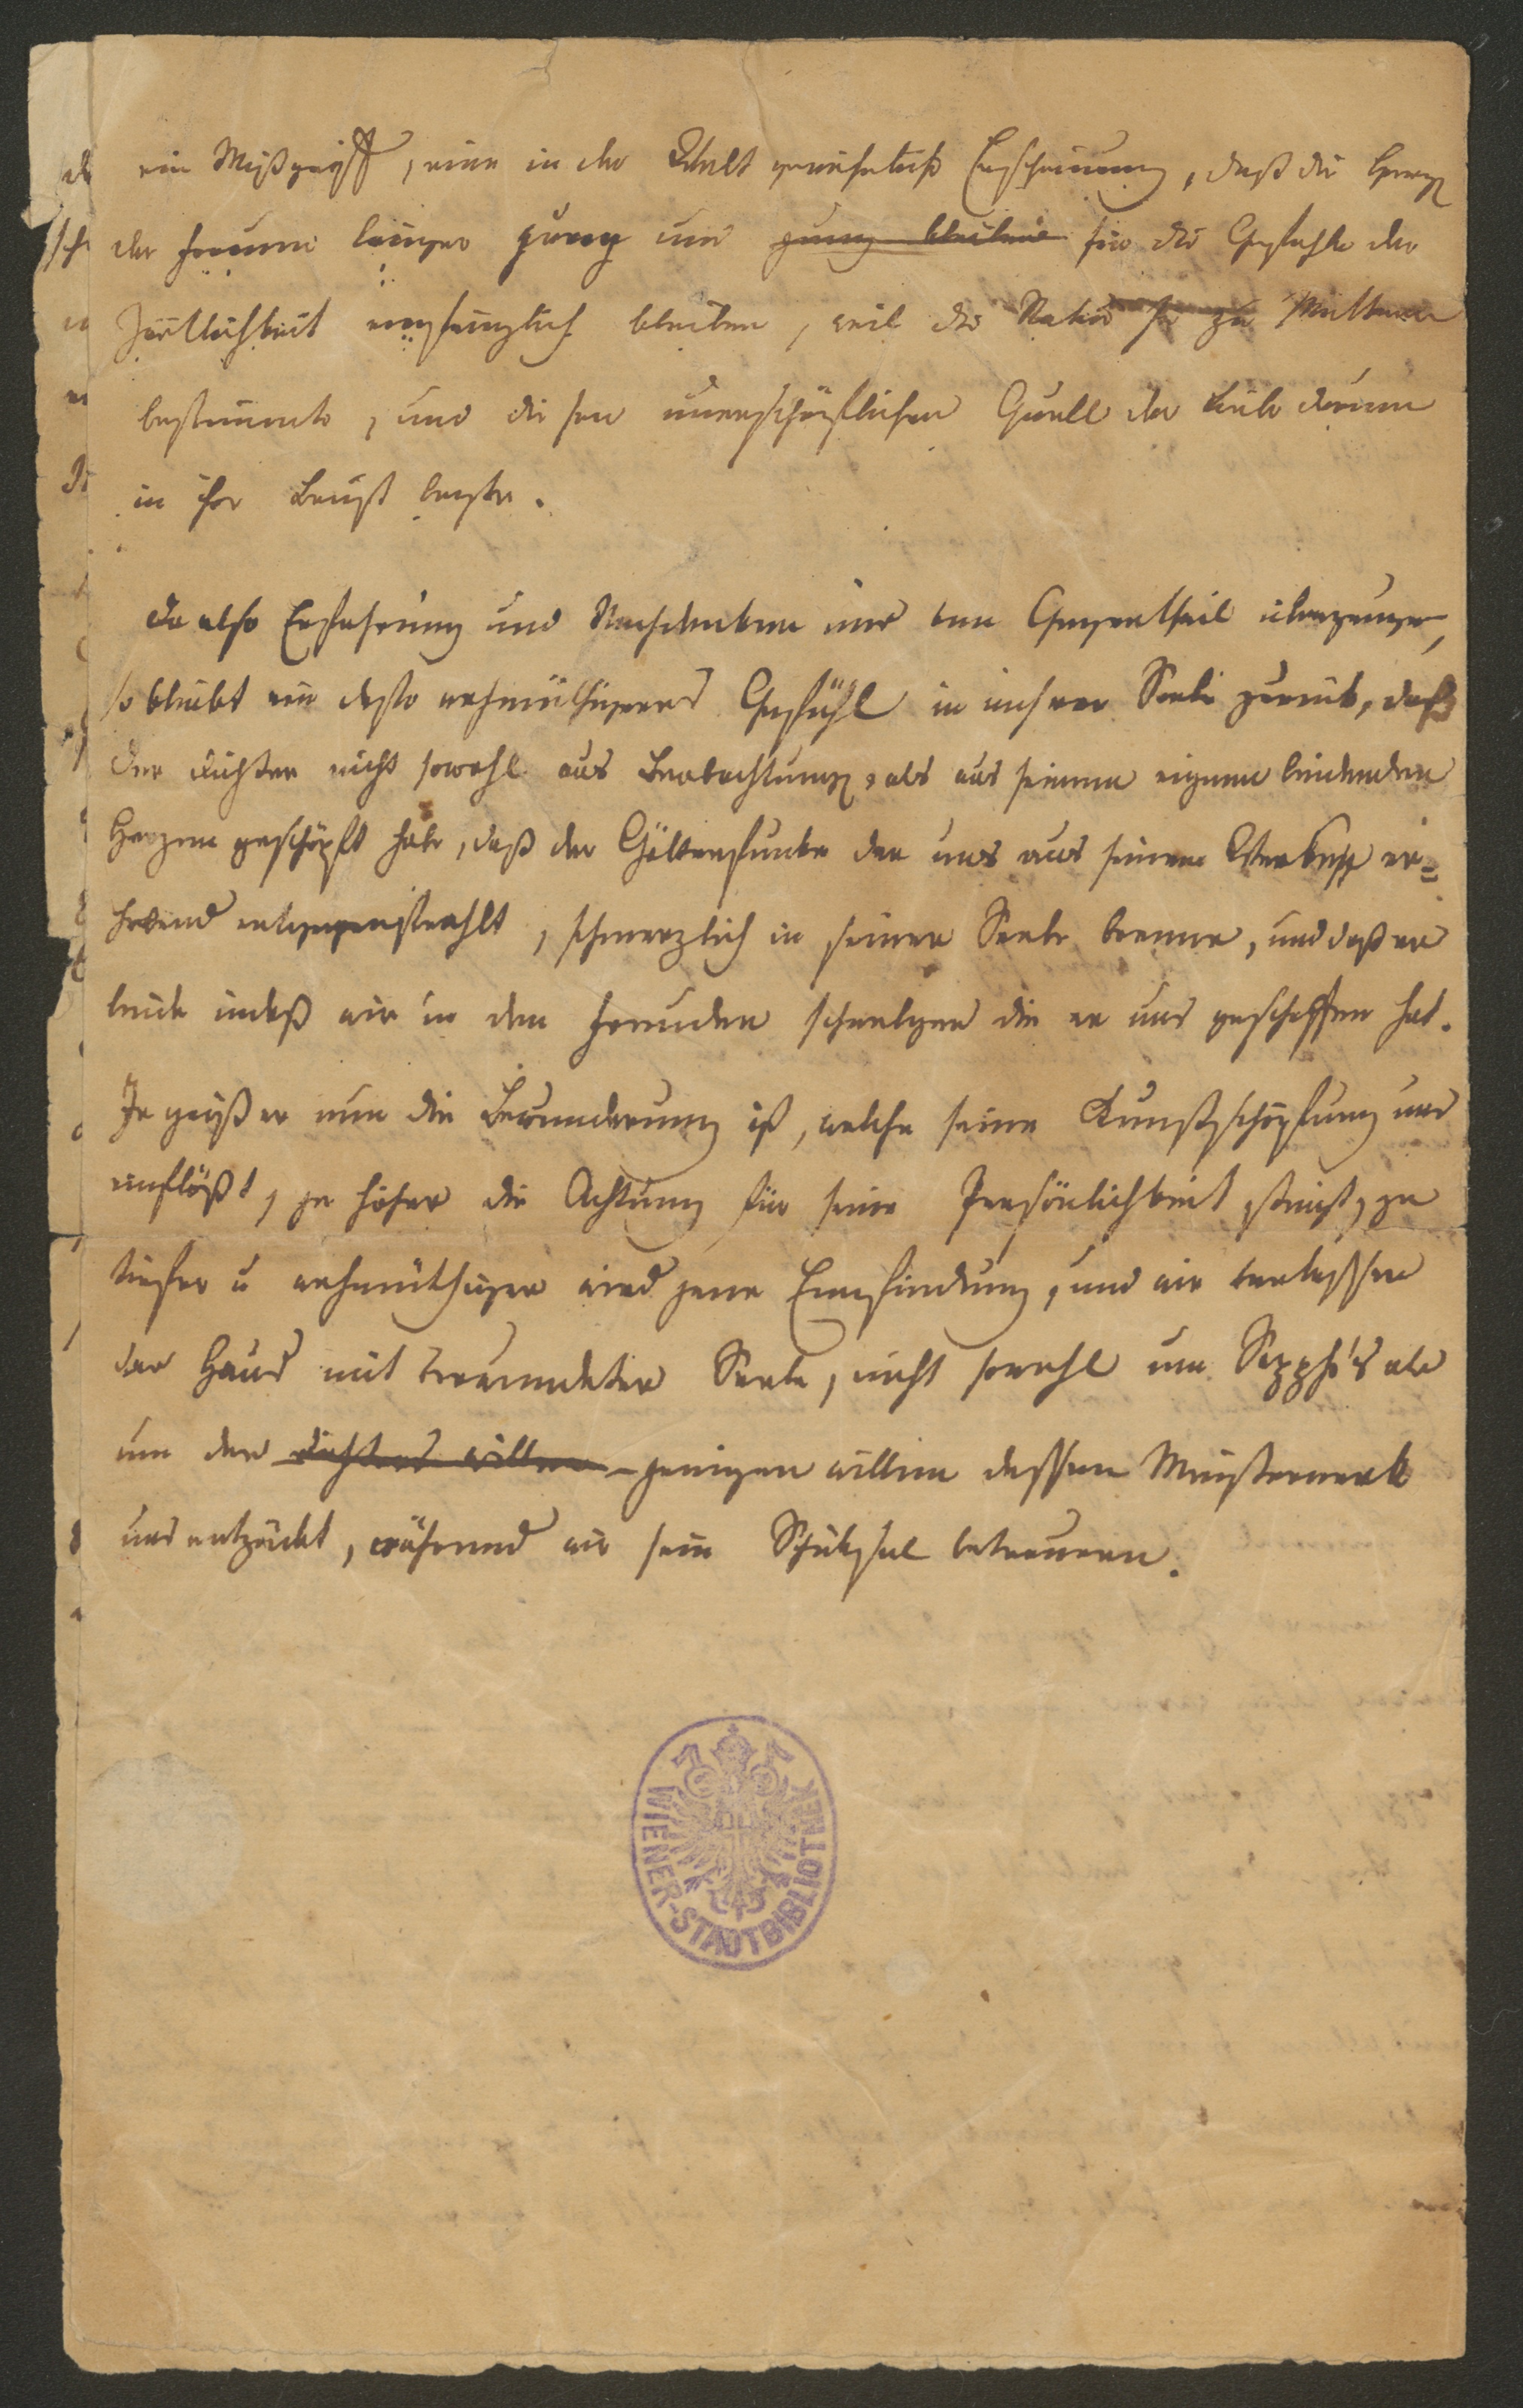 ein Mißgriff, eine in der Welt gewöhnliche Erscheinung, daß die Herzen
der Frauen länger jung und jung bleiben für die Gefühle der
Zärtlichkeit empfänglich bleiben, weil die Natur sie zu Müttern
bestimmte, und diesen unerschöpflichen Quell der Liebe darum
in ihre Brust legte.
Da also Erfahrung und Nachdenken uns vom Gegentheil überzeugen,
so bleibt ein desto wehmüthigeres Gefühl in unsrer Seele zurück, daß
der Dichter nicht sowohl aus Beobachtung, als aus seinem eignen leidenden
Herzen geschöpft habe, daß der Götterfunke der uns aus seinem Werke er=
hebend entgegenstrahlt, schmerzlich in seiner Seele brenne, und daß er
leide indeß wir in den Freuden schwelgen die er uns geschaffen hat.
Je größer nun die Bewunderung ist, welche seine Kunstschöpfung uns
einflößt, je höher die Achtung für seine Persönlichkeit steigt, je
tiefer u wehmüthiger wird jene Empfindung, und wir verlassen
das Haus mit verwundeter Seele, nicht sowohl um Sappho's als
um des Dichters willen jenigen willen dessen Meisterwerk
uns entzückt, während wir sein Schicksal betrauern.
WIENER-STADTBIBLIOTHEK